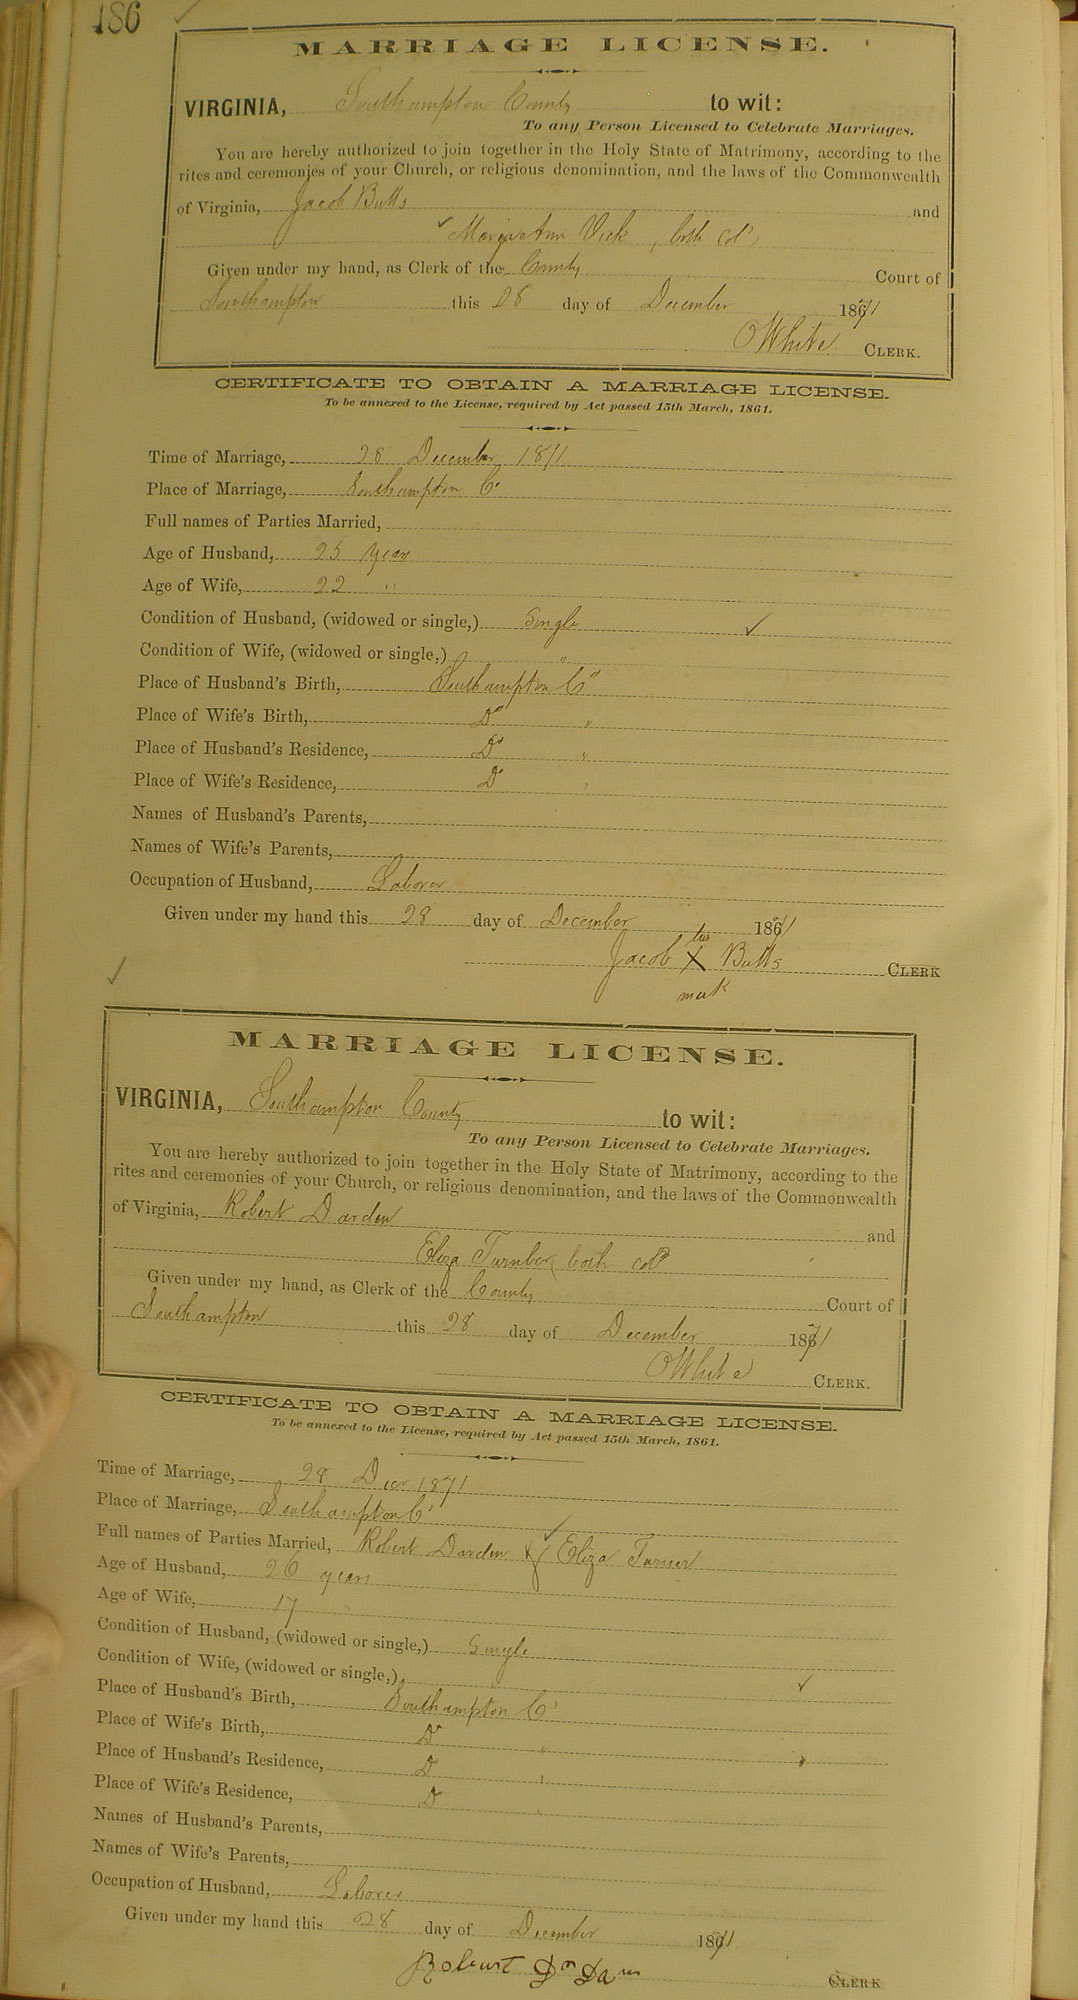 186
MARRIAGE LICENSE.
VIRGINIA, Southampton County to wit:
To any Person Licensed to Celebrate Marriages.
You are hereby authorized to join together in the Holy State of Matrimony, according to the
rites and ceremonies of your Church, or religious denomination, and the laws of the Commonwealth
of Virginia, Jacob Butts and
Ann Vick, both cold
Given under my hand, as Clerk of the County Court of
Southampton this 28 day of December 1871
O White CLERK.
CERTIFICATE TO OBTAIN A MARRIAGE LICENSE.
To be annexed to the License, required by Act passed 15th March, 1861.
Time of Marriage, 28 December 1871
Place of Marriage, Southampton Co
Full names of Parties Married,
Age of Husband, 25 years
Age of Wife, 22 "
Condition of Husband, (widowed or single,) Single
Condition of Wife, (widowed or single,) "
Place of Husband's Birth, Southampton Co
Place of Wife's Birth, Do "
Place of Husband's Residence, Do "
Place of Wife's Residence, Do "
Names of Husband's Parents,
Names of Wife's Parents,
Occupation of Husband, Laborer
Given under my hand this 28 day of December 1871
his
Jacob X Butts CLERK
mark
MARRIAGE LICENSE.
VIRGINIA, Southampton County to wit:
To any Person Licensed to Celebrate Marriages.
You are hereby authorized to join together in the Holy State of Matrimony, according to the
rites and ceremonies of your Church, or religious denomination, and the laws of the Commonwealth
of Virginia, Robert Darden and
Eliza Turner both cold
Given under my hand, as Clerk of the County Court of
Southampton this 28 day of December 1871
O White CLERK.
CERTIFICATE TO OBTAIN A MARRIAGE LICENSE.
To be annexed to the License, required by Act passed 15th March, 1861.
Time of Marriage, 28 Decr 1871
Place of Marriage, Southampton Co
Full names of Parties Married, Robert Darden & Eliza Turner
Age of Husband, 26 years
Age of Wife, 17 "
Condition of Husband, (widowed or single,) Single
Condition of Wife, (widowed or single,) "
Place of Husband's Birth, Southampton Co
Place of Wife's Birth, Do "
Place of Husband's Residence, Do "
Place of Wife's Residence, Do "
Names of Husband's Parents,
Names of Wife's Parents,
Occupation of Husband, Laborer
Given under my hand this 28 day of December 1871
CLERK